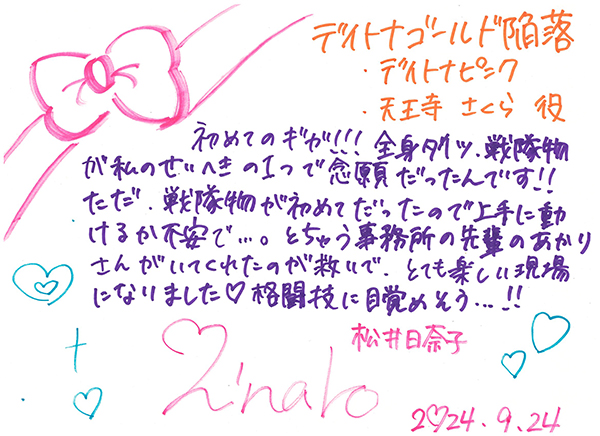 デイトナゴールド陥落
・デイトナピンク
・天王寺 さくら 役
初めてのギガ!!! 全身タイツ、戦隊物
が私のせいへきの1つで念願だったんです!!
ただ、戦隊物が初めてだったので上手に動
けるか不安で…。とちゅう事務所の先輩のあかり
さんがいてくれたのが救いで、とても楽しい現場
になりました♡格闘技に目覚めそう…!!
松井日奈子
Hinako
2♡24.9.24